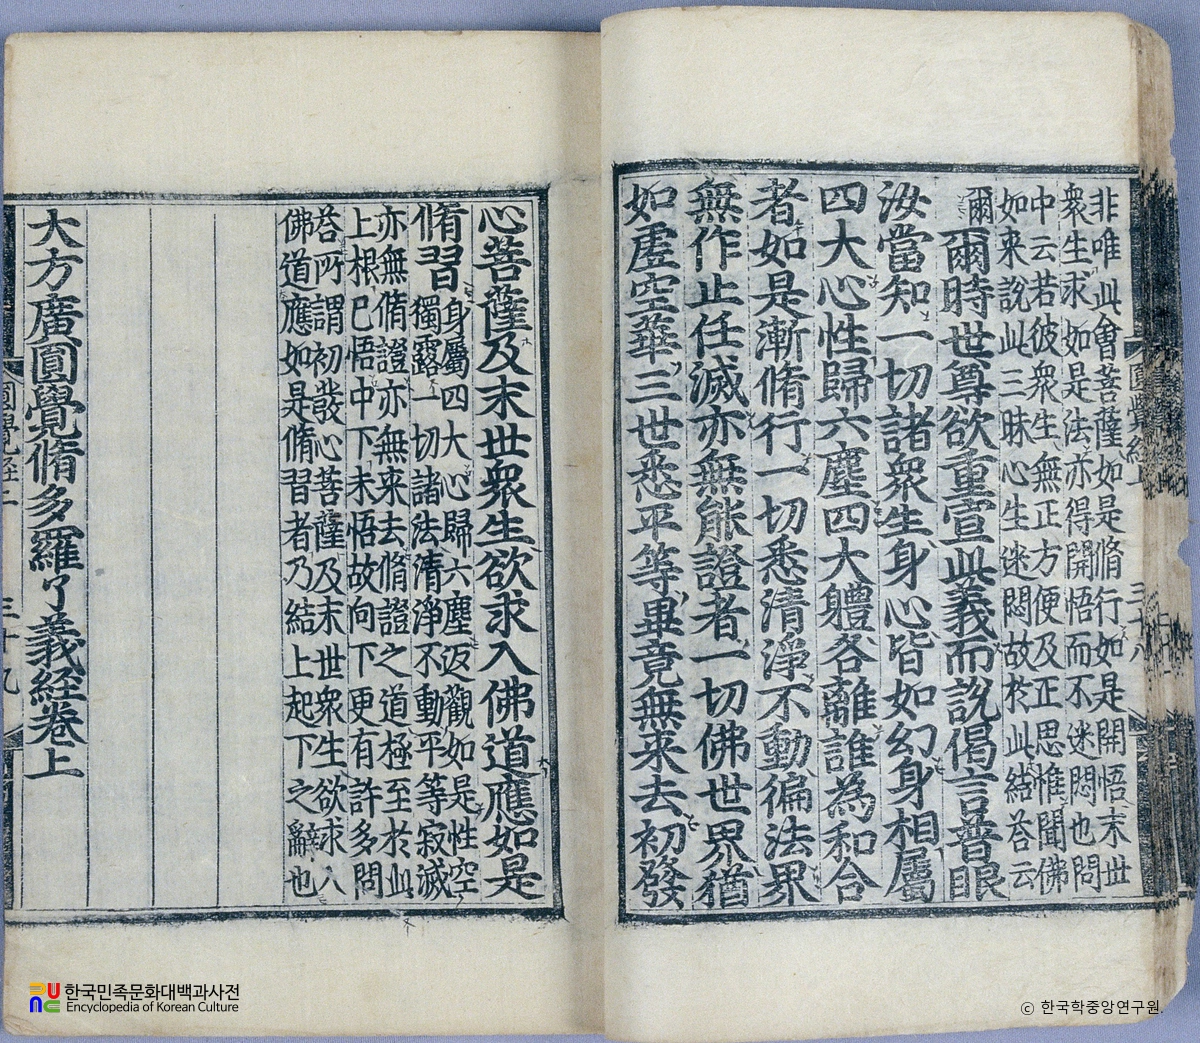 非唯此會菩薩如是脩行如是開悟末世
衆生求如是法亦得開悟而不迷悶也問
中云若彼衆生無正方便及正思惟聞佛
如来說此三昧心生迷悶故於此結荅云
爾爾時世尊欲重宣此義而說偈言普眼
汝當知一切諸衆生身心皆如幻身相屬
四大心性歸六塵四大軆各離誰為和合
者如是漸脩行一切悉清淨不動徧法界
無作止任滅亦無能證者一切佛世界猶
如虛空華三世悉平等畢竟無来去初發
圓覺經上
三十八
心菩薩及末世衆生欲求入佛道應如是
脩習
身屬四大心歸六塵返觀如是性空
獨露一切諸法清淨不動平等寂滅
亦無脩證亦無来去脩證之道極至於此
上根已悟中下未悟故向下更有許多問
荅所謂初發心菩薩及末世衆生欲求入
佛道應如是脩習者乃結上起下之辭也
大方廣圓覺脩多羅了義經卷上
三十九
한국민족문화대백과사전
Encyclopedia of Korean Culture
© 한국학중앙연구원.